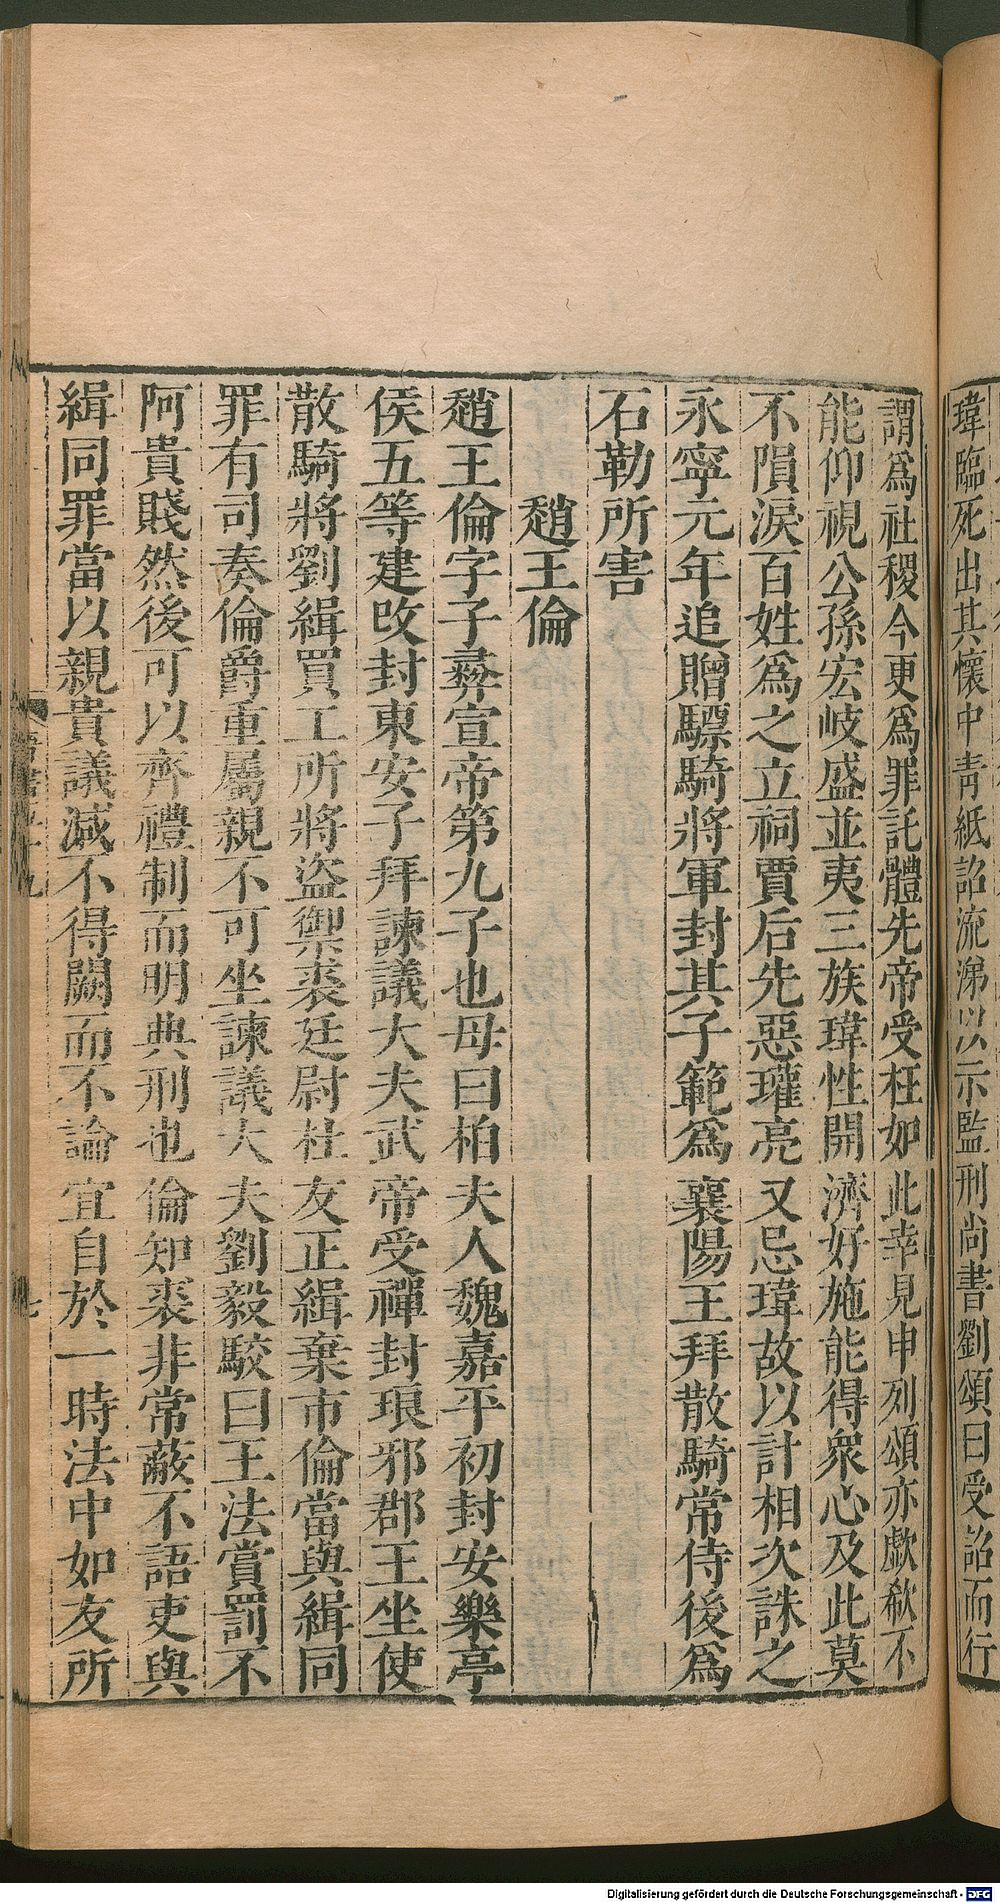 瑋臨死出其懷中靑紙詔流涕以示監刑尚書劉頌曰受詔而行
謂爲社稷今更爲罪託體先帝受枉如此幸見申列頌亦歔欷不
能仰視公孫宏岐盛並夷三族瑋性開濟好施能得衆心及此莫
不隕淚百姓爲之立祠賈后先惡瓘亮又忌瑋故以計相次誅之
永寧元年追贈驃騎將軍封其子範爲襄陽王拜散騎常侍後爲
石勒所害
趙王倫
趙王倫字子彝宣帝第九子也母曰柏夫人魏嘉平初封安樂亭
侯五等建改封東安子拜諫議大夫武帝受禪封琅邪郡王坐使
散騎將劉緝買工所將盜禦裘廷尉杜友正緝棄市倫當與緝同
罪有司奏倫爵重屬親不可坐諫議大夫劉毅駮曰王法賞罰不
阿貴賤然後可以齊禮制而明典刑也倫知裘非常蔽不語吏與
緝同罪當以親貴議減不得闕而不論宜自於一時法中如友所
七
Digitalisierung gefördert durch die Deutsche Forschungsgemeinschaft - DFG